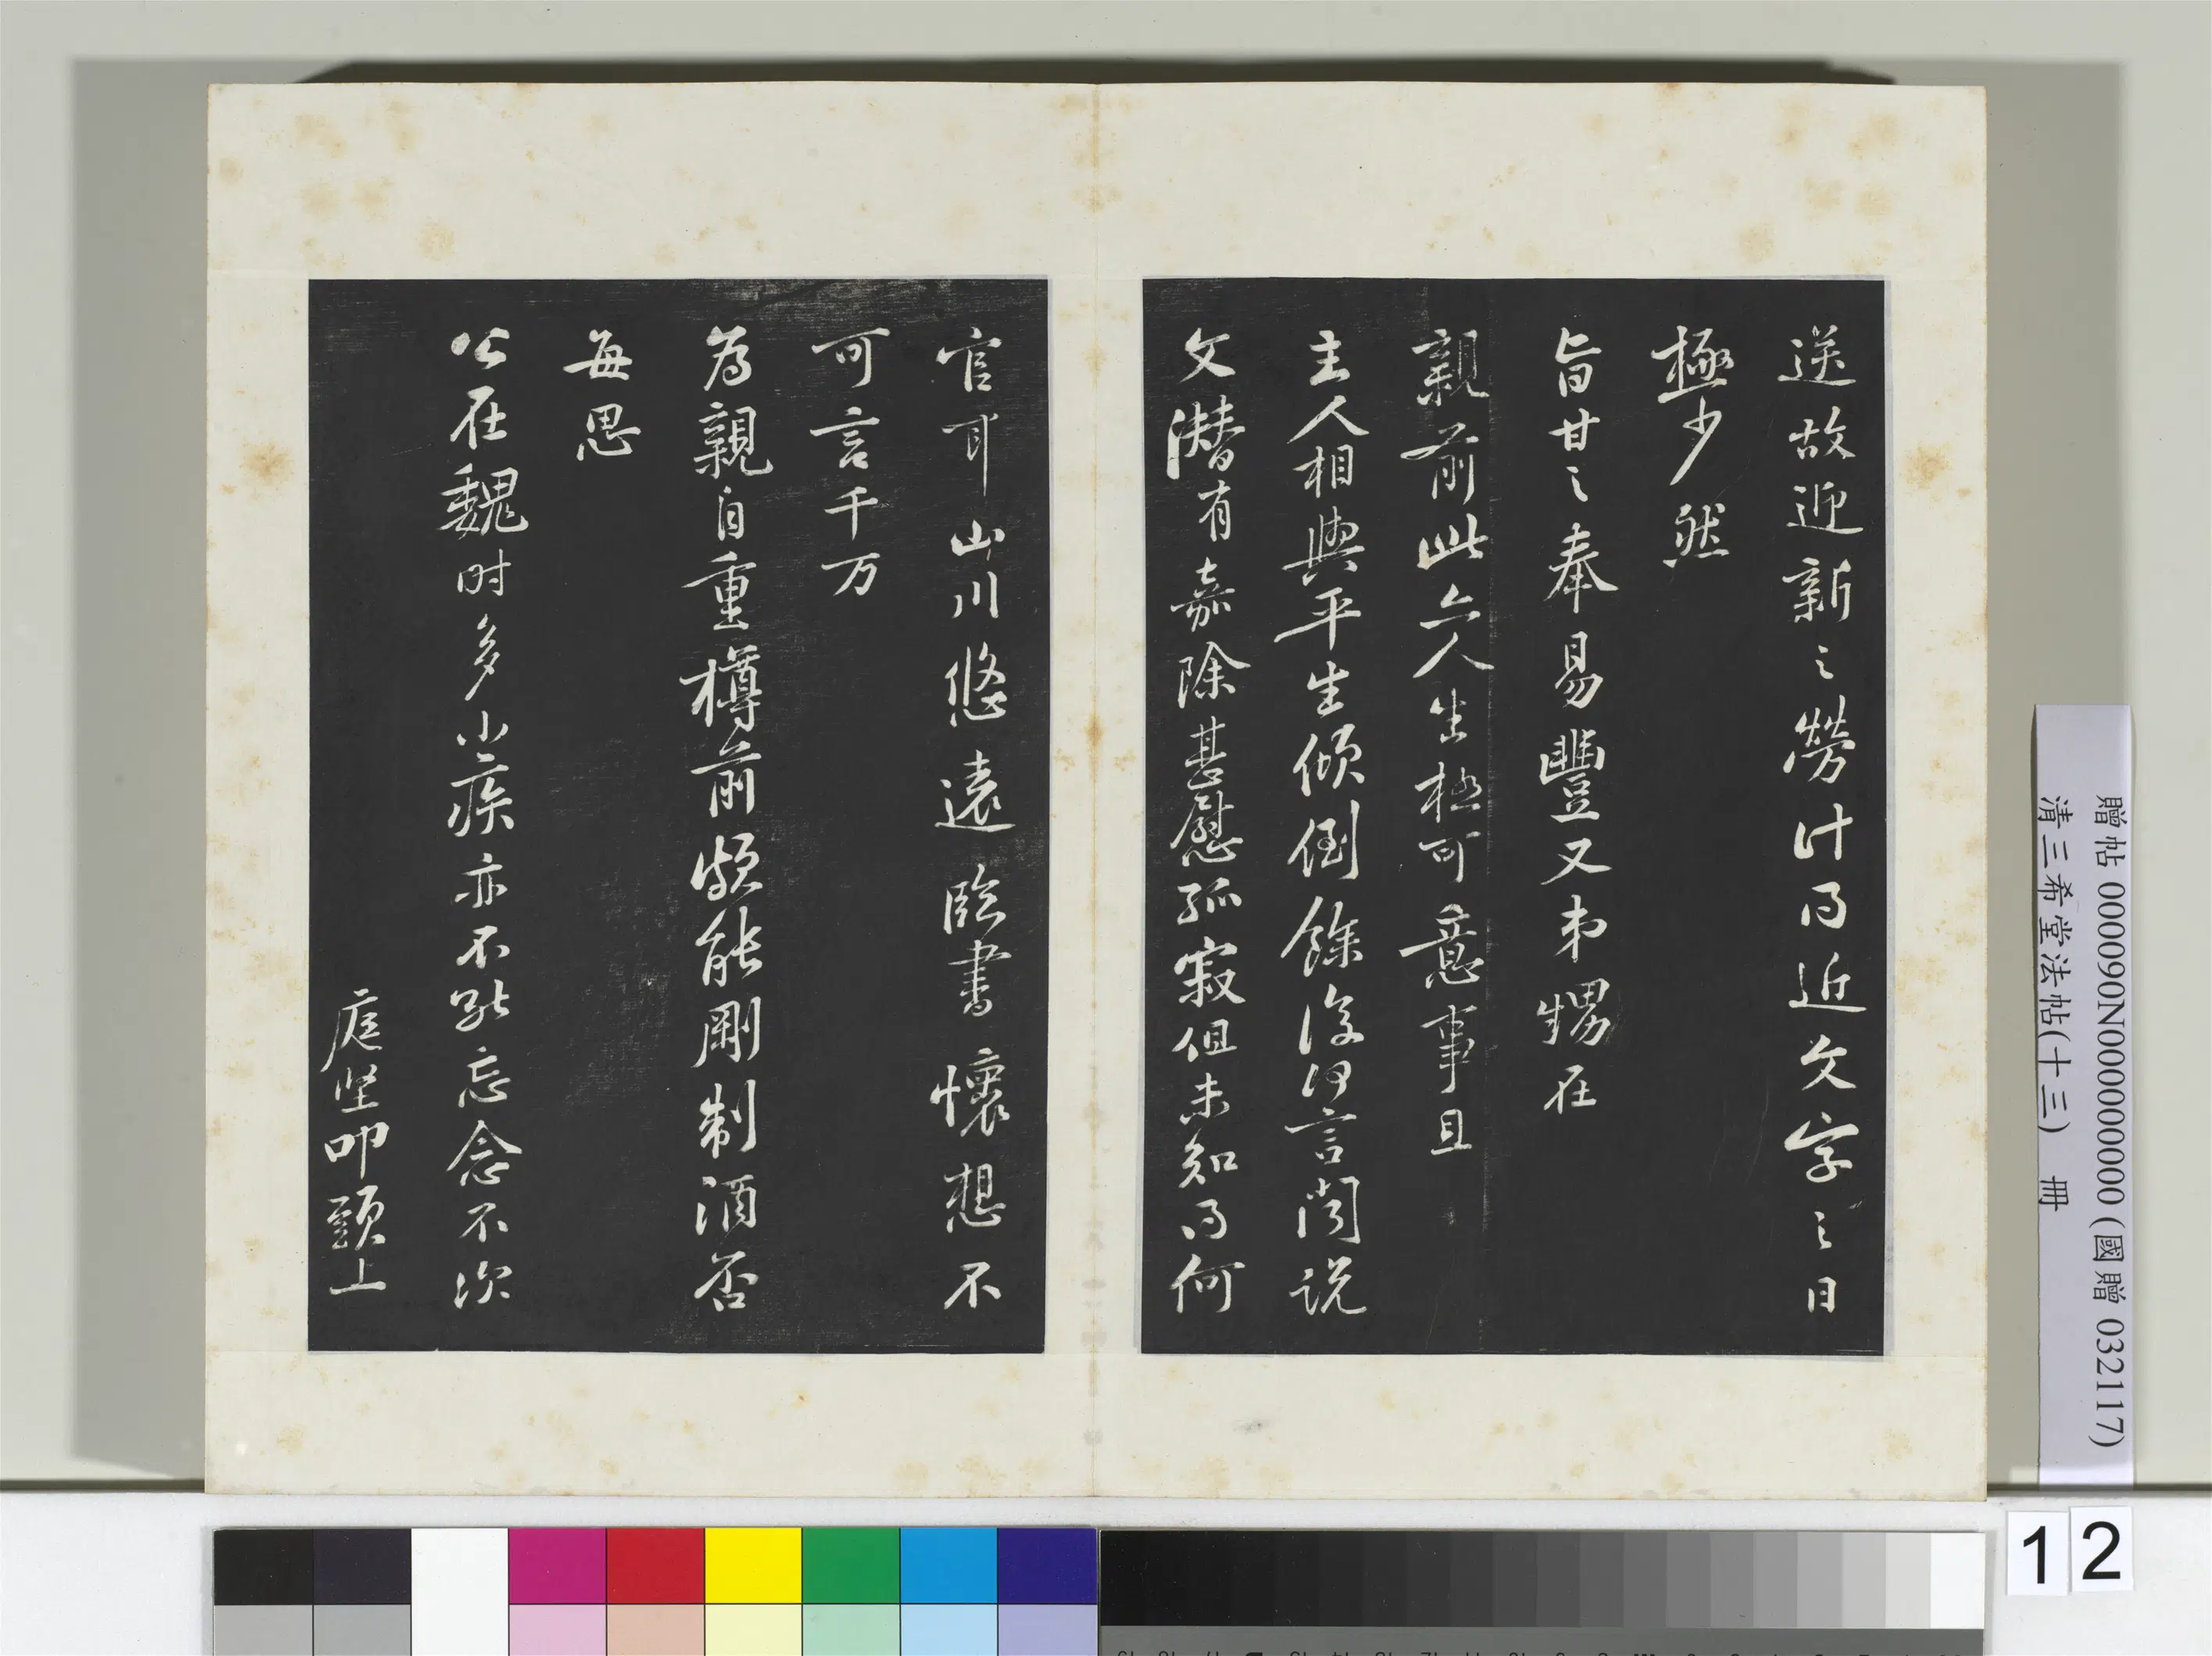 送故迎新之勞計得近文字之日
極少然
旨甘之奉易豐又弟甥在
親前此亦人生極可意事且
主人相與平生傾倒餘復何言聞說
文潛有嘉除甚慰孤寂但未知得何
官耳山川悠遠臨書懷想不
可言千万
為親自重樽前頗能剛制酒否
每思
公在魏時多小疾亦不能忘念不次
庭堅叩頭上
贈帖 000090N000000000 (國贈 032117)
清三希堂法帖(十三) 冊
12